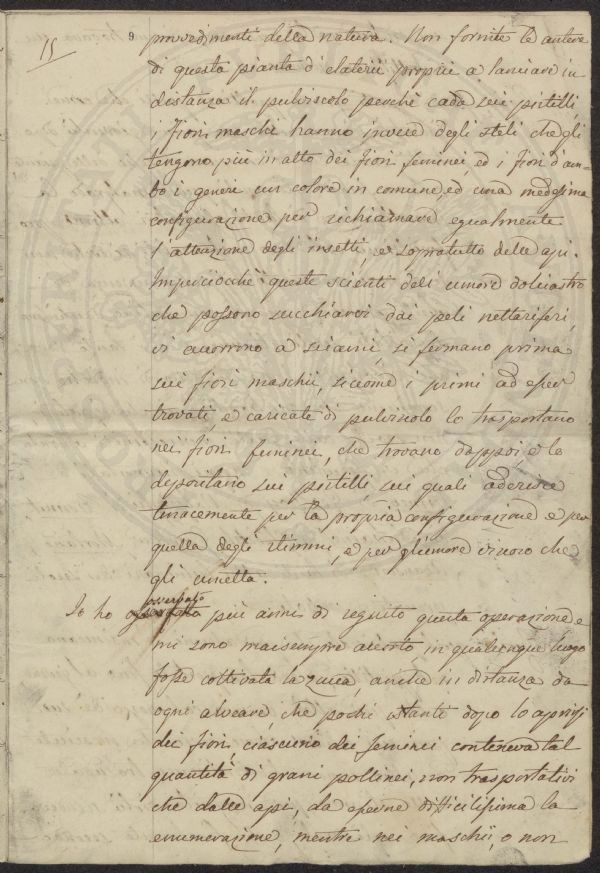 15
9
provvedimenti della natura. Non fornite le antere
di questa pianta d'elaterii proprii a lanciare in
distanza il pulviscolo perchè cada sui pistilli,
i fiori maschi hanno invece degli steli che gli
tengono più in alto dei fiori feminei, ed i fiori d'am-
bo i generi un colore in comune, ed una medesima
configurazione per richiamare egualmente
l'attenzione degli insetti, e sopratutto delle api.
Imperciocchè queste scienti dell'umore dolciastro
che possono succhiarvi dai peli nettariferi,
vi accorrono a sciami, si fermano prima
sui fiori maschii, siccome i primi ad esser
trovati, e caricate di pulviscolo lo trasportano
nei fiori feminei, che trovano dappoi, e lo
depositano sui pistilli, sui quali aderisce
tenacemente per la propria configurazione e per
quella degli stimmi, e per l'umore vischioso che
gli umetta.
osservato
Io ho più anni di seguito questa operazione e
mi sono maisempre accorto in qualunque luogo
fosse coltivata la zucca, anche in distanza da
ogni alveare, che pochi istanti dopo lo aprirsi
dei fiori ciascuno dei feminei conteneva tal
quantità di grani pollinei, non trasportativi
che dalle api, da esserne difficilissima la
enumerazione, mentre nei maschii, o non